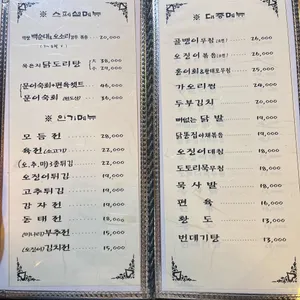 ※ 스페셜메뉴
백순대&오소리 20,000
묵은지 닭도리탕 大 38,000
小 28,000
문어숙회+편육셋트 46,000
문어숙회 36,000
※ 인기메뉴
모듬전 28,000
육전(소고기) 22,000
(오,추,미)3종튀김 22,000
오징어튀김 20,000
고추튀김 18,000
감자전 18,000
동태전 18,000
(미나리)부추전 15,000
(오징어)김치전 15,000
※ 대중메뉴
골뱅이무침 26,000
오징어볶음 26,000
홍어회&황태포무침 25,000
가오리찜 24,000
두부김치 20,000
뼈없는닭발 19,000
닭똥집야채볶음 19,000
오징어데침 18,000
도토리묵무침 18,000
묵사발 14,000
편육 16,000
황도 13,000
번데기탕 13,000